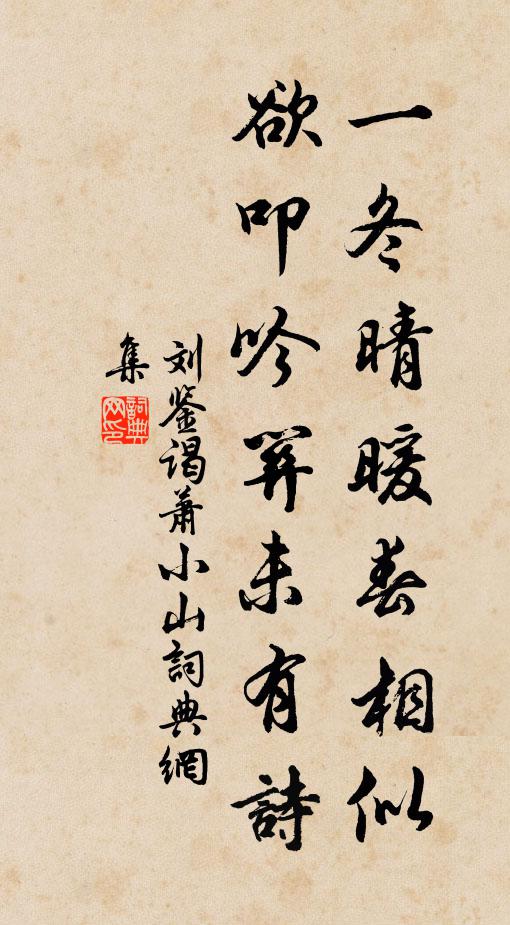 一冬晴暖春相似
欲叩吟關未有詩
刘鉴谒萧小山詞典網
集
詞典網印